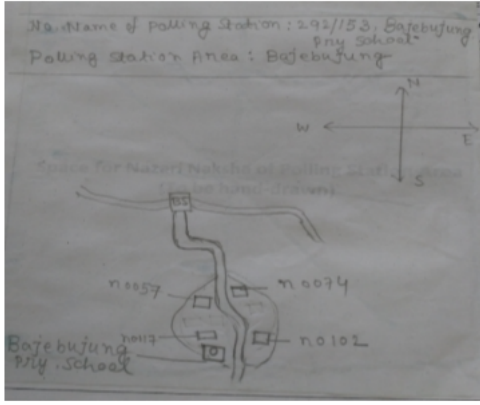 No. Name of Polling Station: 292/153, Bajebujung
Pry School
Polling Station Area: Bajebujung
N
W
E
S
Space for Nazri Naksha of Polling Station Area
(to be hand-drawn)
n0057
n0074
n0117
n0102
Bajebujung
Pry. School